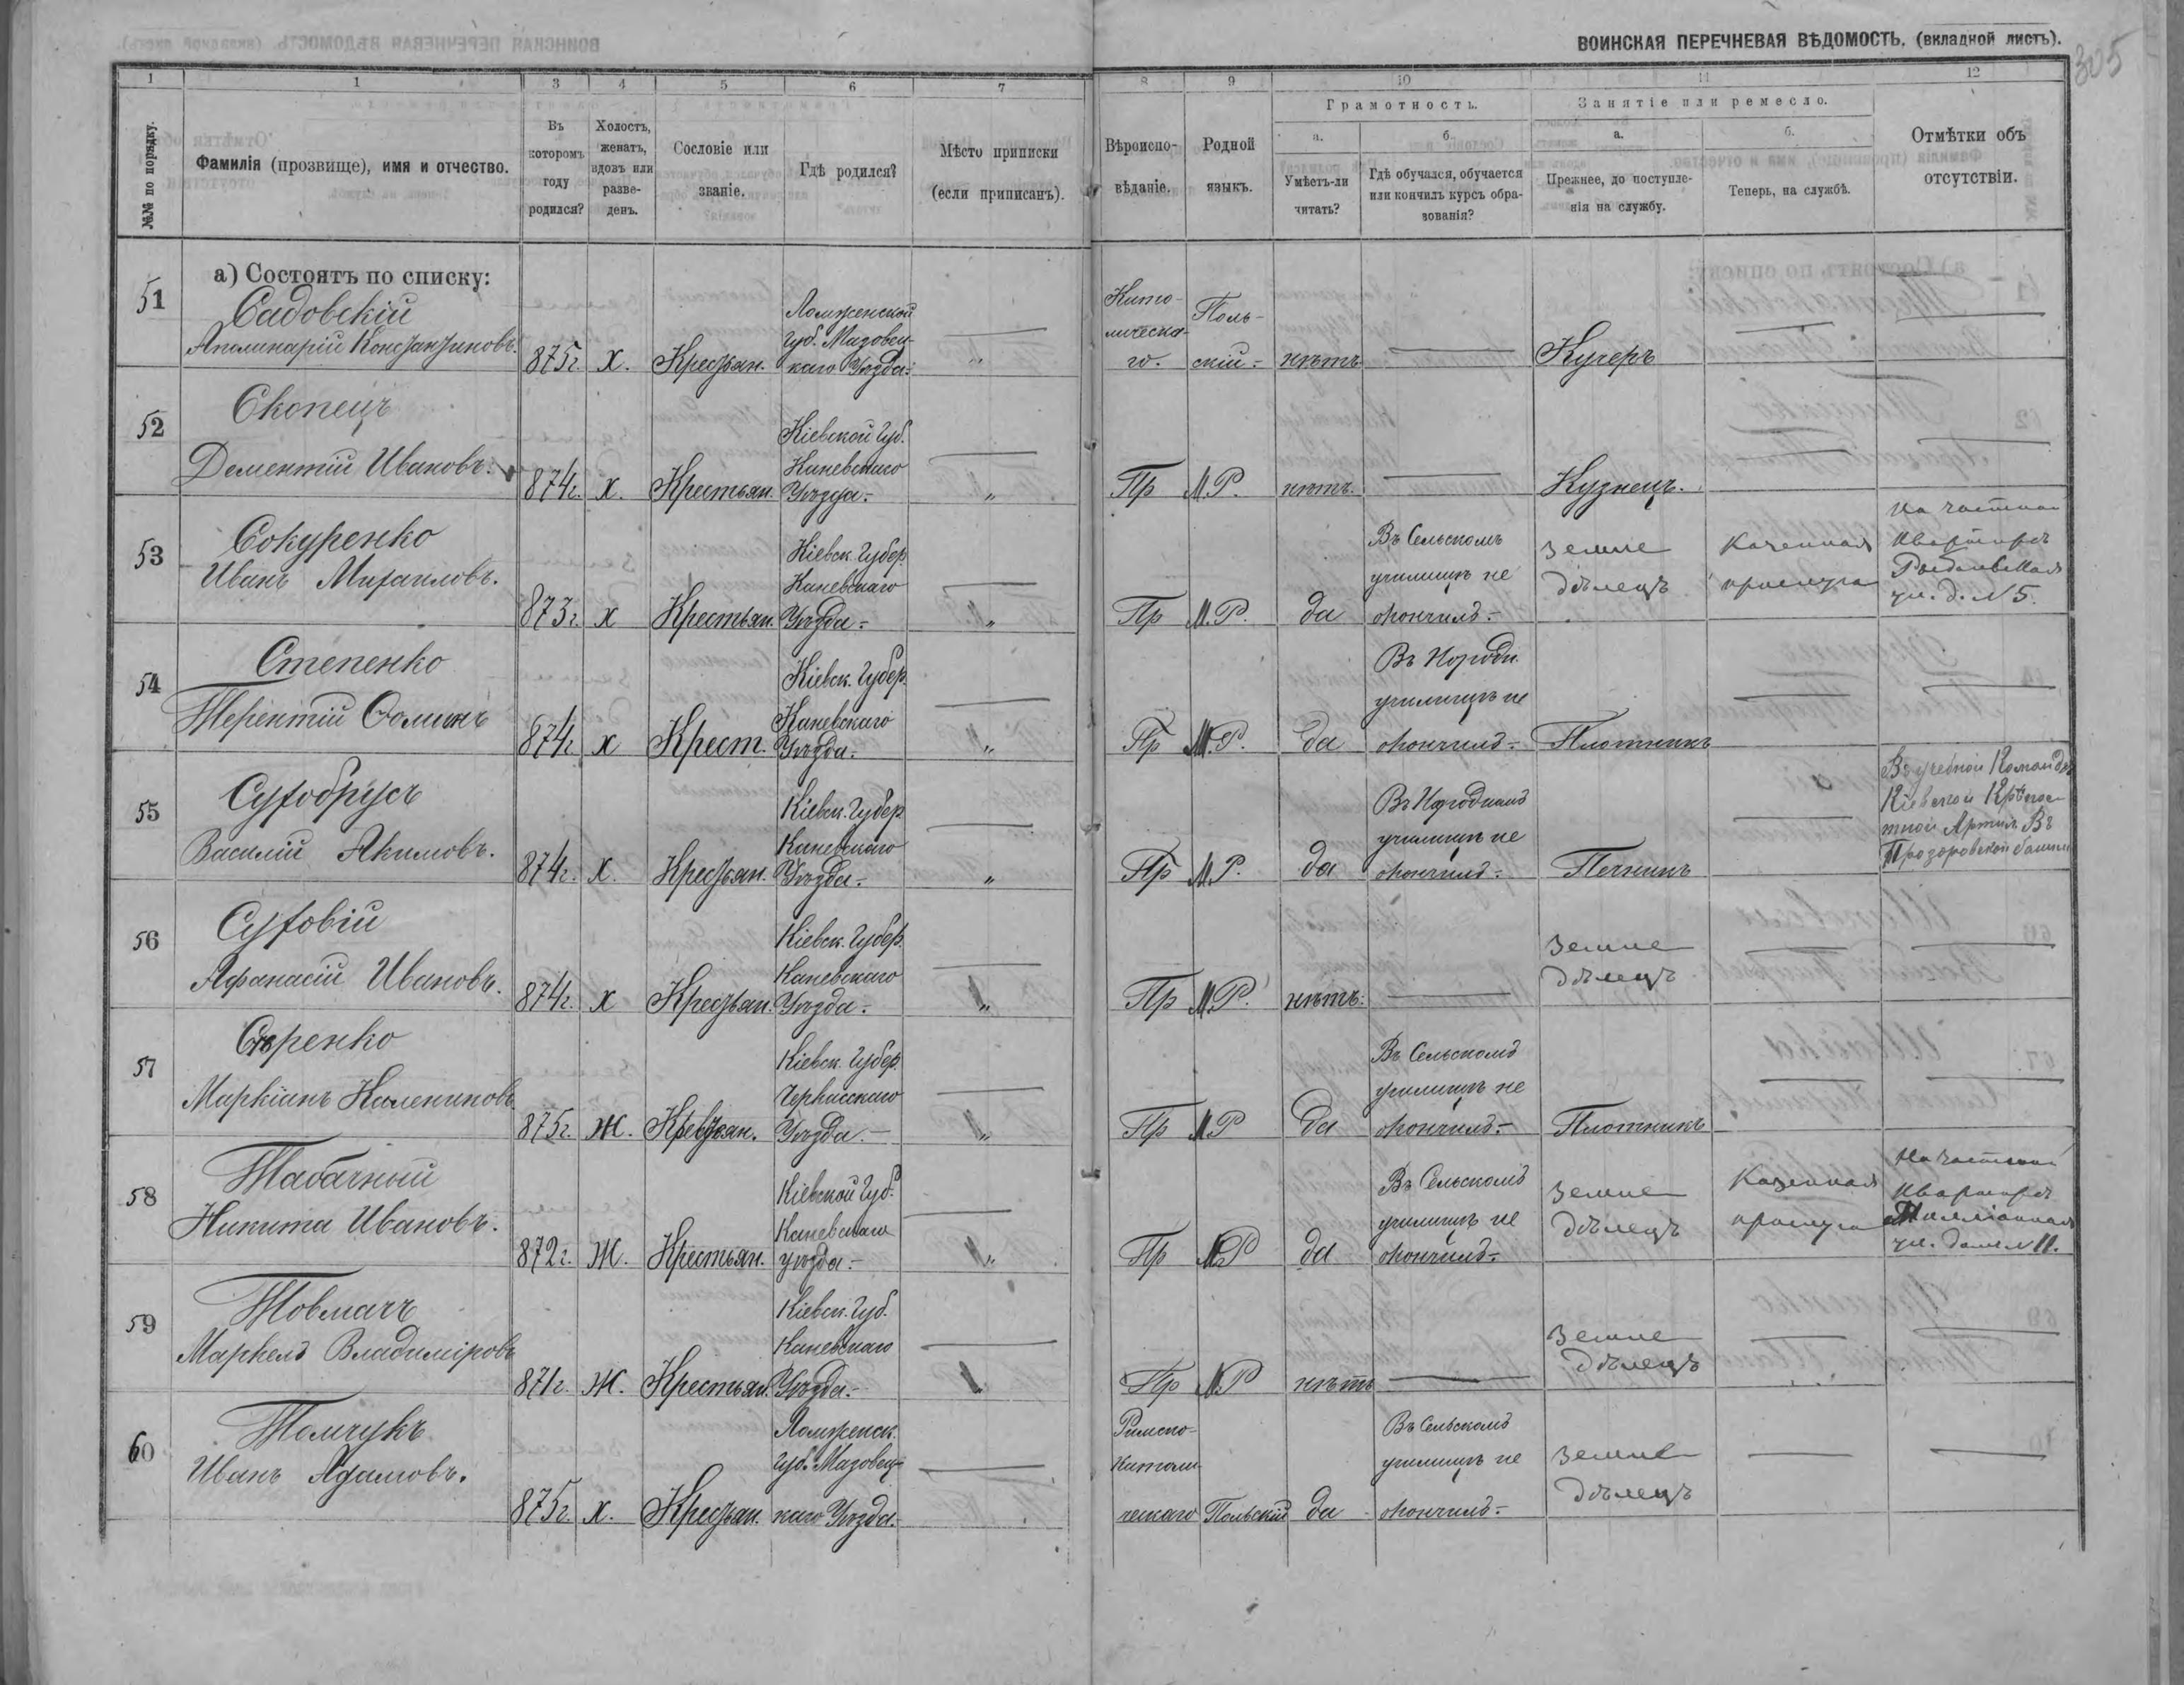 ВОИНСКАЯ ПЕРЕЧНЕВАЯ ВѢДОМОСТЬ. (вкладной листъ).
305
1 1 3 4 5 6 7 8 9 10 11 12
№№ по порядку.
Фамилія (прозвище), имя и отчество.
Въ котоpомъ году родился?
Холостъ, женатъ, вдовъ или разведенъ.
Сословіе или званіе.
Гдѣ родился?
Мѣсто приписки (если приписанъ).
Вѣроисповѣданіе.
Родной языкъ.
Грамотность.
а.
Умѣетъ-ли читать?
б.
Гдѣ обучался, обучается или кончилъ курсъ образованія?
Занятіе или ремесло.
а.
Прежнее, до поступленія на службу.
б.
Теперь, на службѣ.
Отмѣтки объ отсутствіи.
а) Состоятъ по списку:
51
Садовскій
Аполинарій Константиновъ.
875г. х. Крестьян.
Ломженской
губ. Мазовец-
каго Уѣзда.
„
Като-
лическа-
го.
Поль-
скій - нѣтъ — Кучеръ — —
52
Скопецъ
Дементій Ивановъ.
874г. х. Крестьян.
Кіевской губ.
Каневскаго
Уѣзда.
„
Пр М.Р. нѣтъ. — Кузнецъ.
53
Сокуренко
Иванъ Михаиловъ.
873г. х Крестьян.
Кіевск. Губер
Каневскаго
Уѣзда -
„
Пр М.Р. да
Въ Сельскомъ
училищѣ не
окончилъ -
Земле
дѣлецъ
Казенная
прислуга
На частной
квартирѣ
ул. д. №5.
54
Степенко
Терентій Фоминъ
874г х Крест.
Кіевск. Губер.
Каневскаго
Уѣзда.
„
Пр М.Р. да
Въ Народн.
училищѣ не
окончилъ - Плотникъ
55
Сухобрусъ
Василій Якимовъ.
874г. х. Крестьян.
Кіевск. Губер
Каневскаго
Уѣзда.
„
Пр М.Р. да
Въ Народномъ
училищѣ не
окончилъ - Печникъ
Въ учебной Командѣ
Кіевской Крѣпос-
тной Артил. Въ
Прозоровской башни
56
Суховій
Афанасій Ивановъ.
874г. х Крестьян.
Кіевск. Губер.
Каневскаго
Уѣзда.
„
Пр М.Р. нѣтъ. —
Земле
дѣлецъ
57
Сѣренко
Маркіанъ Калениковъ
875г. Ж. Крестьян.
Кіевск. Губер.
Черкасскаго
Уѣзда. -
„
Пр М.Р да
Въ Сельскомъ
училищѣ не
окончилъ - Плотникъ
58
Табачный
Никита Ивановъ.
872г. Ж. Крестьян.
Кіевской Губ.
Каневскаго
уѣзда. -
„
Пр М.Р да
Въ Сельскомъ
училищѣ не
окончилъ -
Земле
дѣлецъ
Казенная
прислуга
На частной
квартирѣ
ул. домъ №11.
59
Товмачъ
Маркелъ Владиміровъ
871г. Ж. Крестьян.
Кіевск. Губ.
Каневскаго
Уѣзда. -
Пр М.Р нѣтъ —
Земле
дѣлецъ
60
Томчукъ
Иванъ Адамовъ.
875г. х. Крестьян.
Ломженск.
губ. Мазовец-
каго Уѣзда.
Римско-
Католи-
ческаго Польскій да
Въ Сельскомъ
училищѣ не
окончилъ -
Земле
дѣлецъ